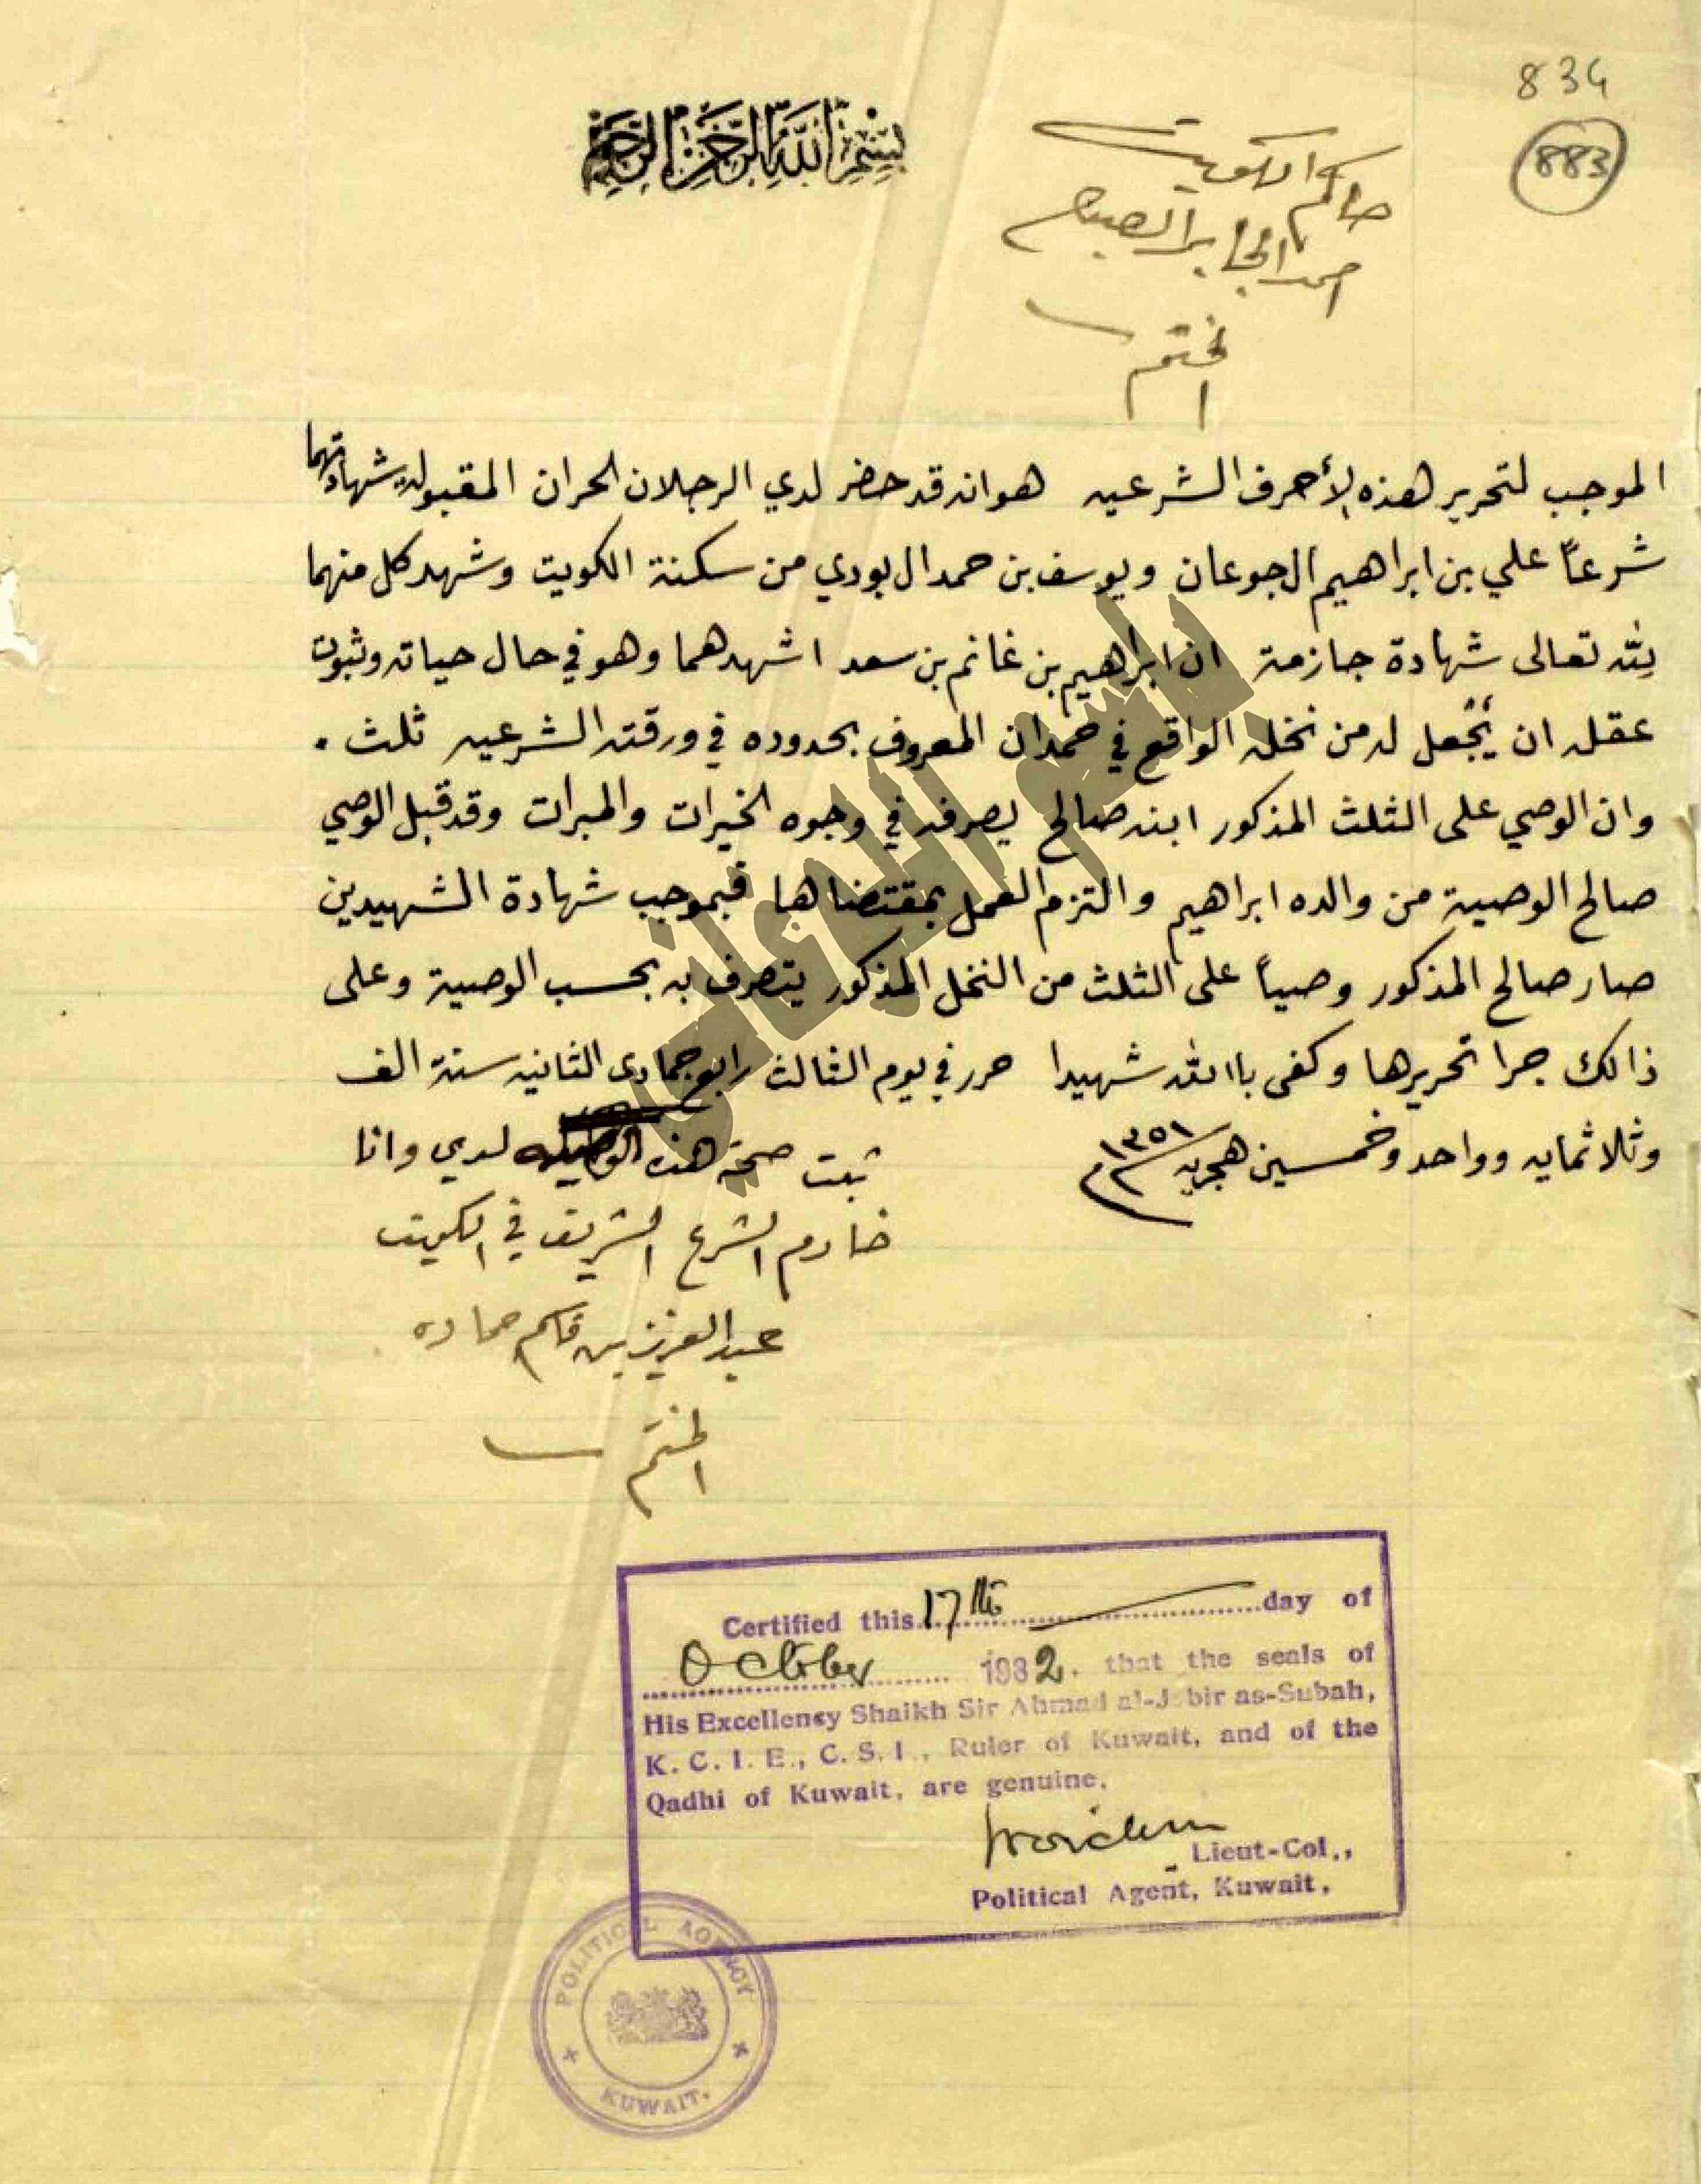 834
883
بسم الله الرحمن الرحيم
حاكم الكويت
احمد الجابر الصباح
الختم
الموجب لتحرير هذه الأحرف الشرعيه هو انه قد حضر لدي الرجلان الحران المقبوله شهادتهما
شرعاً علي بن ابراهيم ال جوعان ويوسف بن حمد ال بودي من سكنة الكويت وشهد كل منهما
لله تعالى شهادة جازمة ان ابراهيم بن غانم بن سعد اشهدهما وهو في حال حياته وثبوت
عقله ان يُجعل له من نخله الواقع في حمدان المعروف بحدوده في ورقته الشرعيه ثلث .
وان الوصي على الثلث المذكور ابنه صالح يصرفه في وجوه الخيرات والمبرات وقد قبل الوصي
صالح الوصية من والده ابراهيم والتزم العمل بمقتضاها فبموجب شهادة الشهيدين
صار صالح المذكور وصياً على الثلث من النخل المذكور يتصرف به بحسب الوصية وعلى
ذالك جرا تحريرها وكفى باالله شهيدا حرر في يوم الثالث رابع جمادى الثانيه سنة الف
وثلاثمايه وواحد وخمسين هجريه ١٣٥١
ثبتت صحة هذه لدي وانا
خادم الشرع الشريف في الكويت
عبد العزيز بن قاسم حماده
الختم
Certified this 17th day of
October 1932. that the seals of
His Excellency Shaikh Sir Ahmad al-Jabir as-Subah,
K. C. I. E., C. S. I., Ruler of Kuwait, and of the
Qadhi of Kuwait, are genuine.
Lieut-Col.,
Political Agent, Kuwait.
POLITICAL AGENCY
KUWAIT.